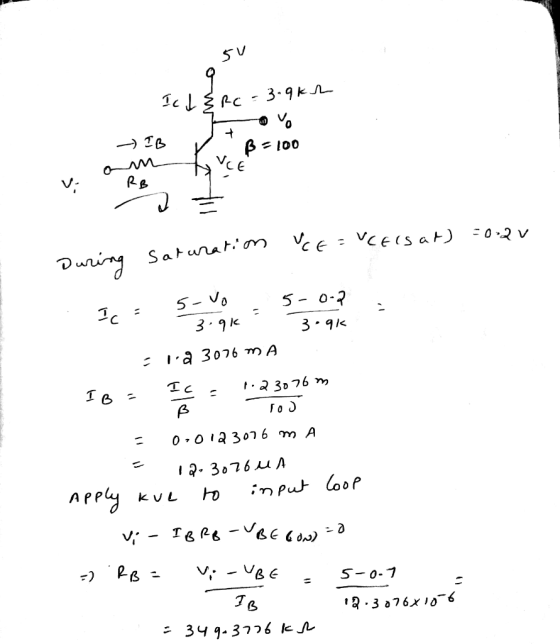 5V
IC ↓ RC = 3.9kΩ
V0
→ IB
+
β = 100
VCE
-
Vi
RB
During Saturation VCE = VCE(sat) = 0.2V
IC = 5-V0 / 3.9k = 5-0.2 / 3.9k =
= 1.23076 mA
IB = IC / β = 1.23076 m / 100
= 0.0123076 mA
= 12.3076 uA
Apply KVL to input loop
Vi - IBRB - VBE(ON) = 0
=> RB = Vi - VBE / IB = 5-0.7 / 12.3076×10-6 =
= 349.3776 kΩ